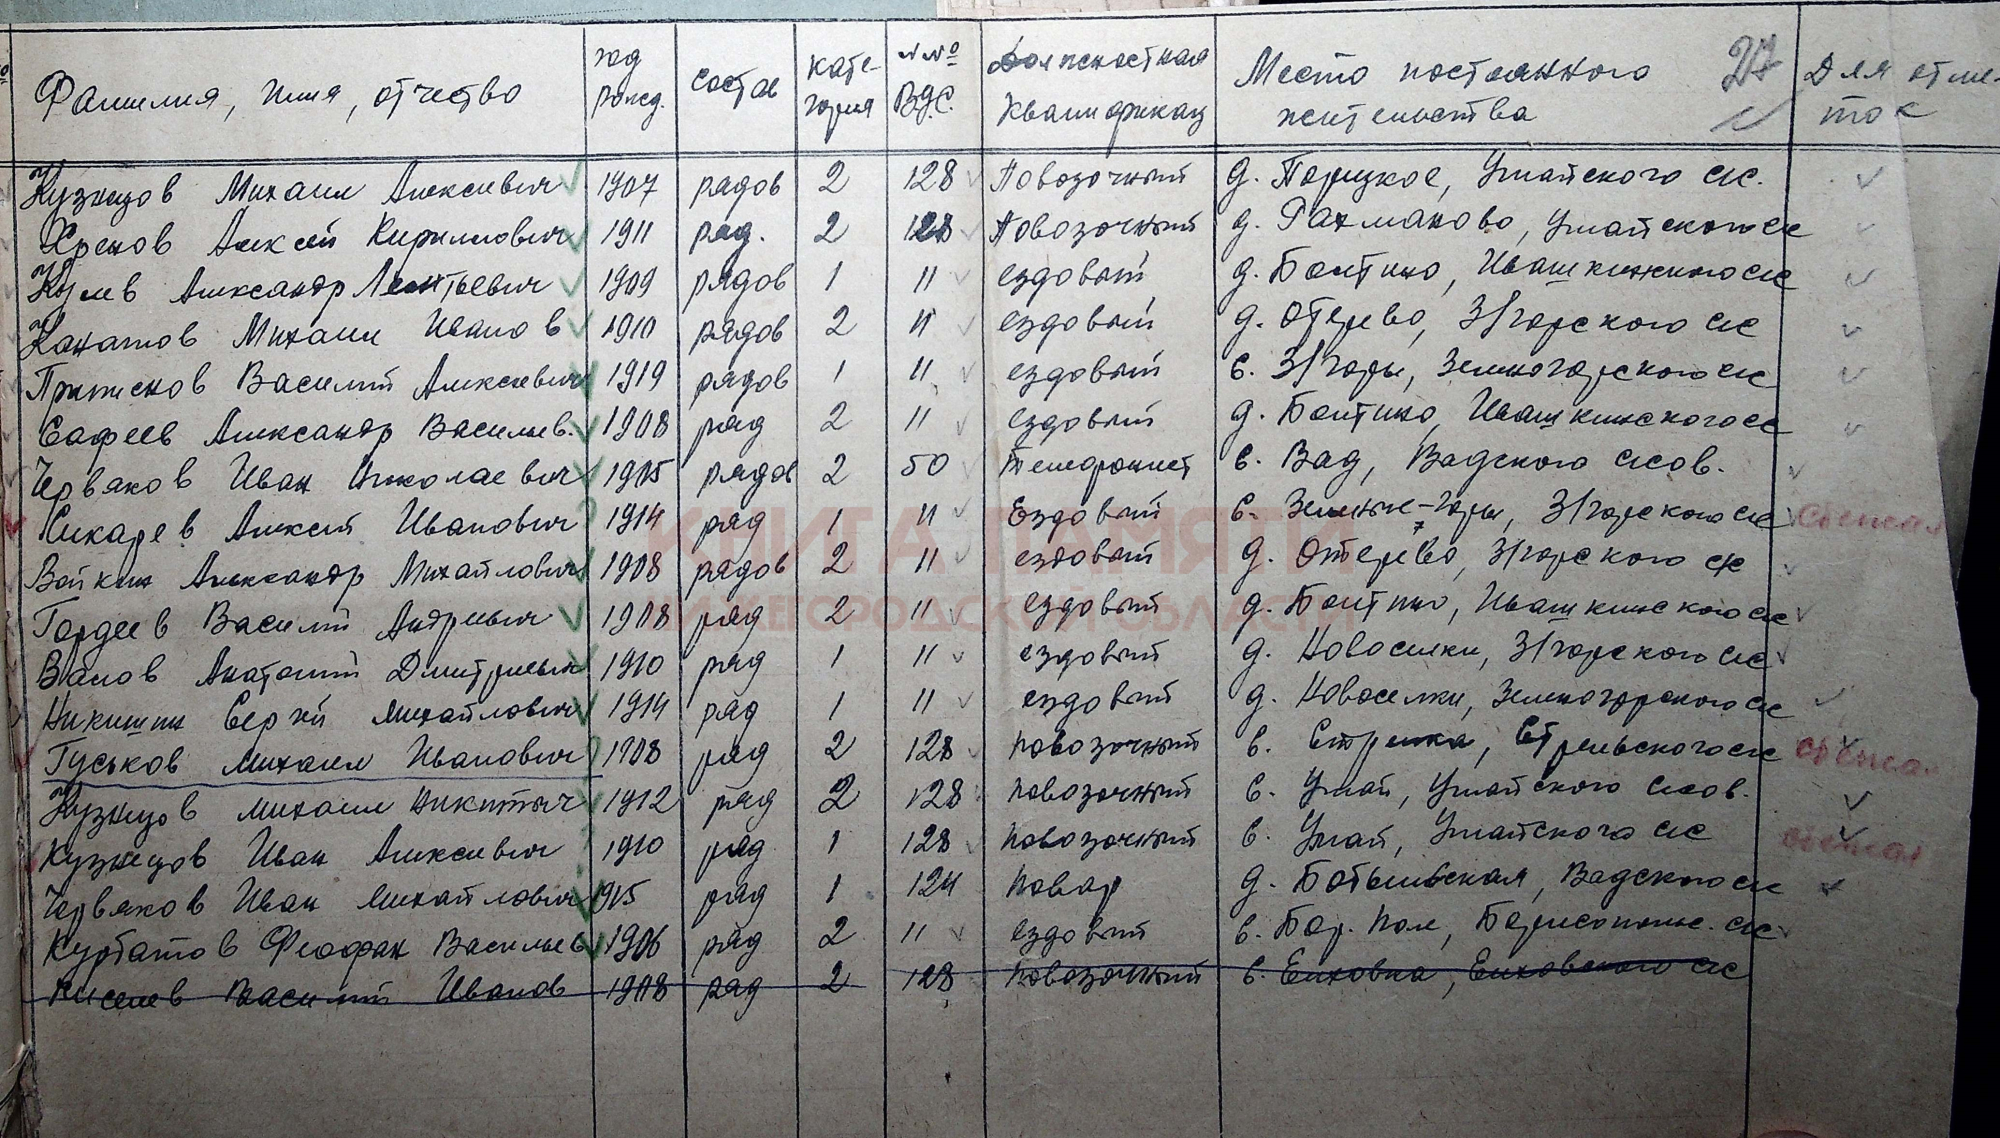 № Фамилия, имя, отчество год рожд. состав кате-гория №№ ВУС. Должностная квалификац Место постоянного жительства 27 Для отме-ток
Кузнецов Михаил Алексеевич 1907 рядов 2 128 Повозочный д. Порецкое, Умайского с/с.
Хренов Алексей Кириллович 1911 ряд. 2 128 Повозочный д. Рахманово, Умайского с/с
Кулев Александр Леонтьевич 1909 рядов 1 11 ездовый д. Болтино, с/с
Канатов Михаил Иванов 1910 рядов 2 11 ездовый д. Отерево, З/горского с/с
Василий Алексеевич 1919 рядов 1 11 ездовый с. З/горы, Зеленогорского с/с
Сафеев Александр Васильев. 1908 ряд 2 11 ездовый д. Болтино, Ивашкинского с/с
Червяков Иван Николаевич 1905 рядов 2 50 Телефонист с. Вад, Вадского с/сов.
Кикарев Алексей Иванович 1914 ряд 1 11 Ездовый с. Зеленые-Горы, З/горского с/с
Войкин Александр Михайлович 1908 рядов 2 11 ездовый д. Отерево, З/горского с/с
Гордеев Василий Андреевич 1908 ряд 2 11 ездовый д. Болтино, Ивашкинского с/с
Валов Анатолий Дмитриевич 1910 ряд 1 11 ездовый д. Новоселки, З/горского с/с
Никишин Сергей Михайлович 1914 ряд 1 11 ездовый д. Новоселки, Зеленогорского с/с
Гуськов Михаил Иванович 1908 ряд 2 128 повозочный с. Стрелка, Стрельского с/с
Кузнецов Михаил Никитич 1912 ряд 2 128 повозочный с. Умай, Умайского с/сов.
Кузнецов Иван Алексеевич 1910 ряд 1 128 повозочный с. Умай, Умайского с/с
Червяков Иван Михайлович 1915 ряд 1 124 повар д. Вадского с/с
Курбатов Феофан Васильев 1906 ряд 2 11 ездовый с. Бор. Пол, с/с
Киселев Василий Иванов 1908 ряд 2 128 повозочный с. Елховка, Елховского с/с
КНИГА ПАМЯТИ
НИЖЕГОРОДСКОЙ ОБЛАСТИ